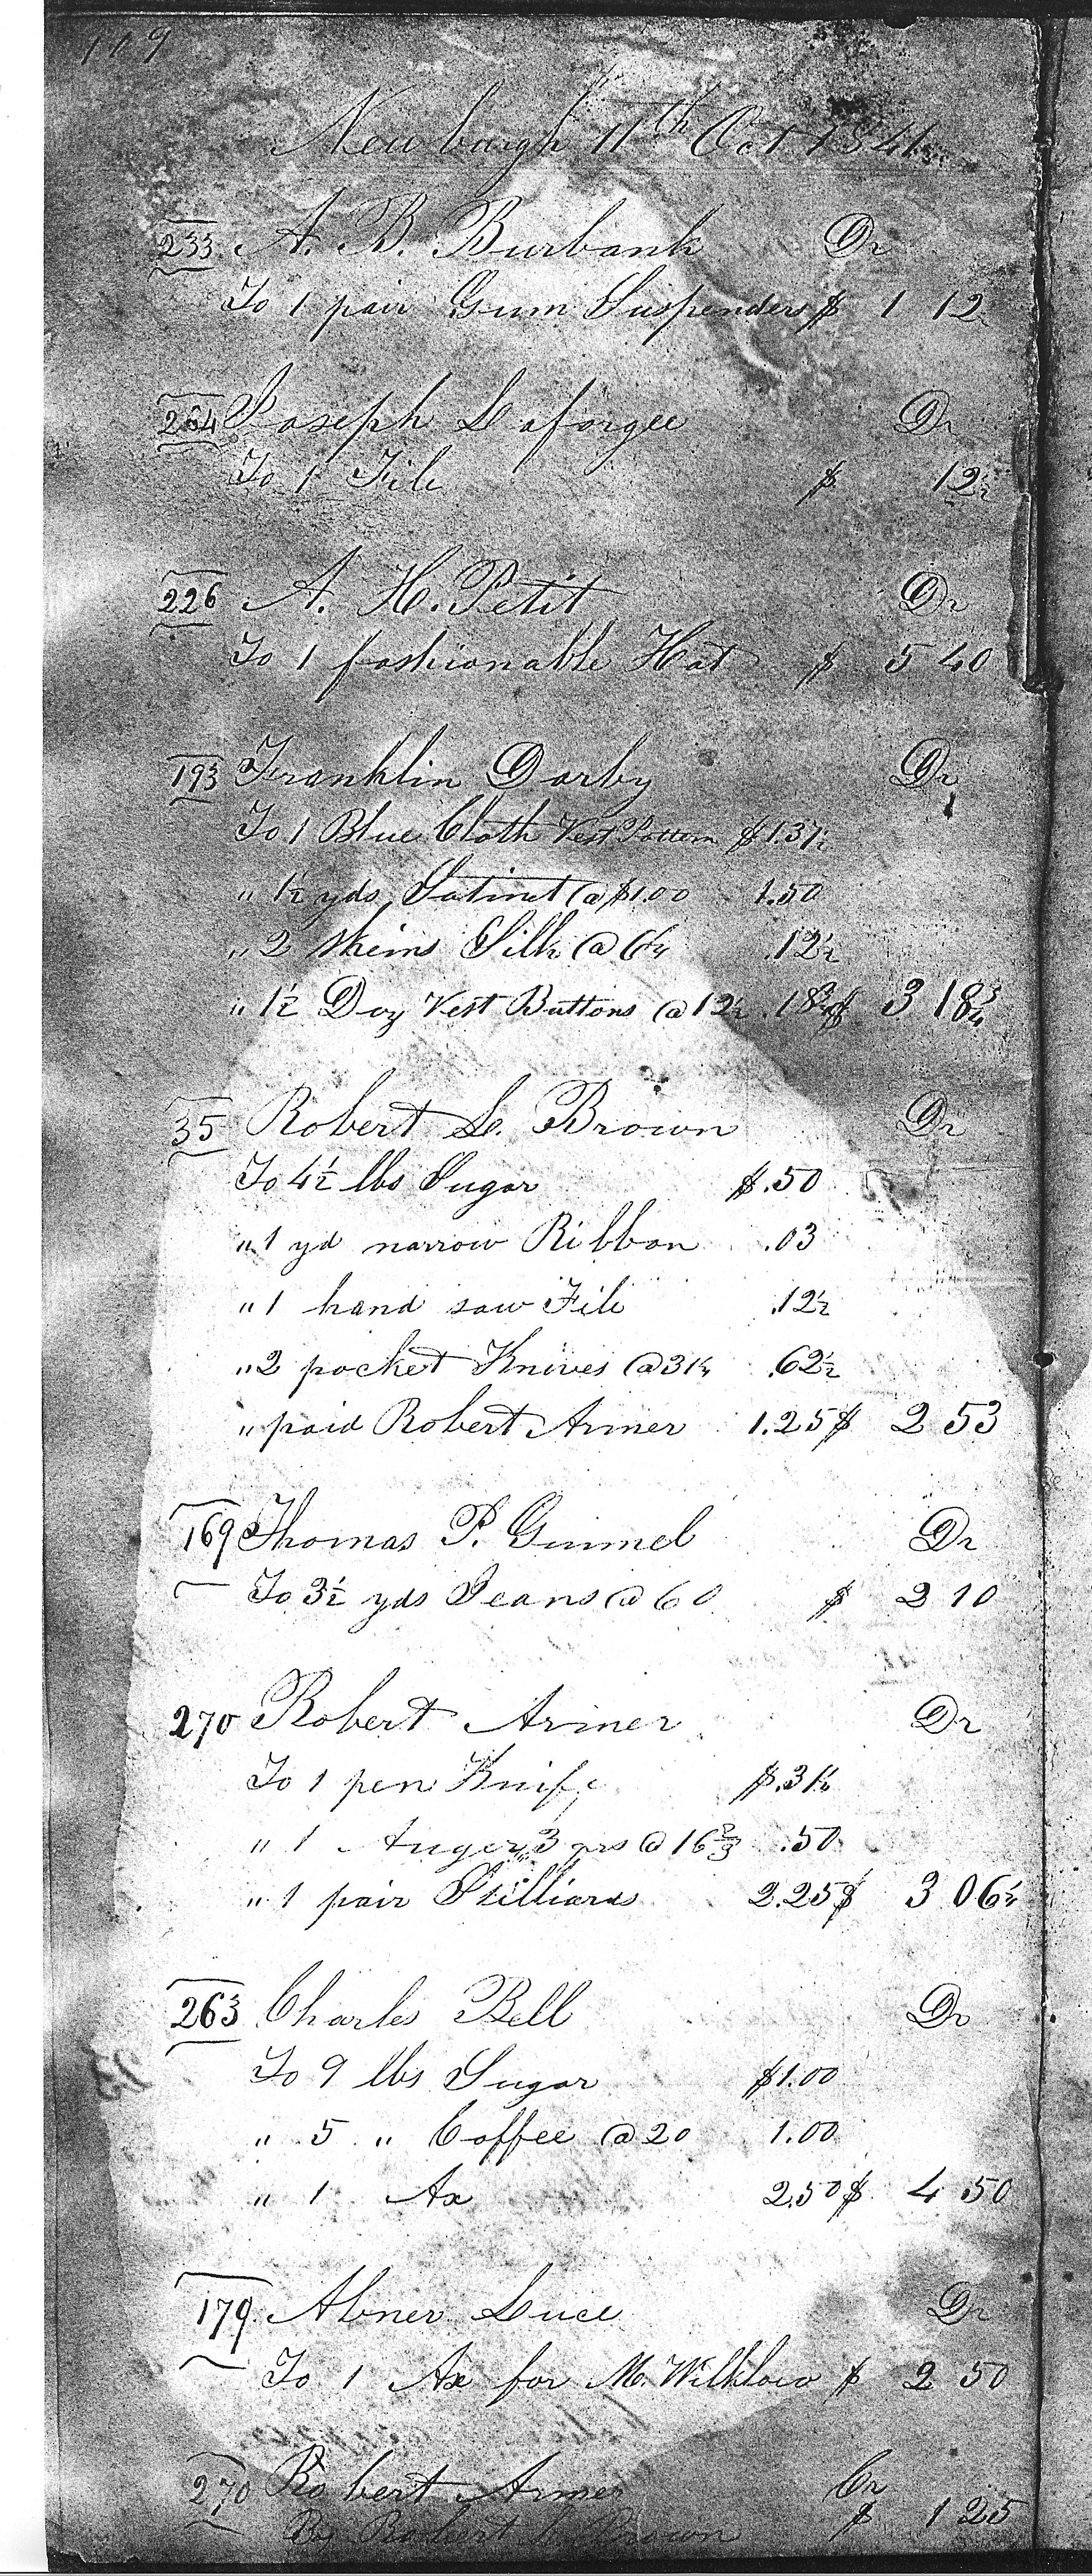 119
Newburgh 11th Oct 1841
233 A. B. Burbank Dr
To 1 pair Gum Suspenders $ 1 12
264 Joseph Laforgee Dr
To 1 File $ 12½
226 A. H. Petit Dr
To 1 fashionable Hat $ 5 40
193 Franklin Darby Dr
To 1 Blue Cloth Vest Pattern $1.37½
" 1½ yds Satinet @ $1.00 1.50
" 2 skeins Silk @ 6¼ .12½
" 1½ Doz Vest Buttons @ 12½ .18¾ $ 3 18¾
35 Robert L. Brown Dr
To 4½ lbs Sugar $.50
" 1 yd narrow Ribbon .03
" 1 hand saw File .12½
" 2 pocket Knives @ 31¼ .62½
" paid Robert Armer 1.25 $ 2 53
169 Thomas P. Gimmel Dr
To 3½ yds Jeans @ 60 $ 2 10
270 Robert Armer Dr
To 1 pen Knife $.31¼
" 1 Auger, 3 qrs @ 16⅔ .50
" 1 pair Stilliards 2.25 $ 3 06¼
263 Charles Bell Dr
To 9 lbs Sugar $1.00
" 5 " Coffee @ 20 1.00
" 1 Ax 2.50 $ 4 50
179 Abner Luce Dr
To 1 Ax for M. Wilhlow $ 2 50
270 Robert Armer Cr
By Robert L. Brown $ 1 25